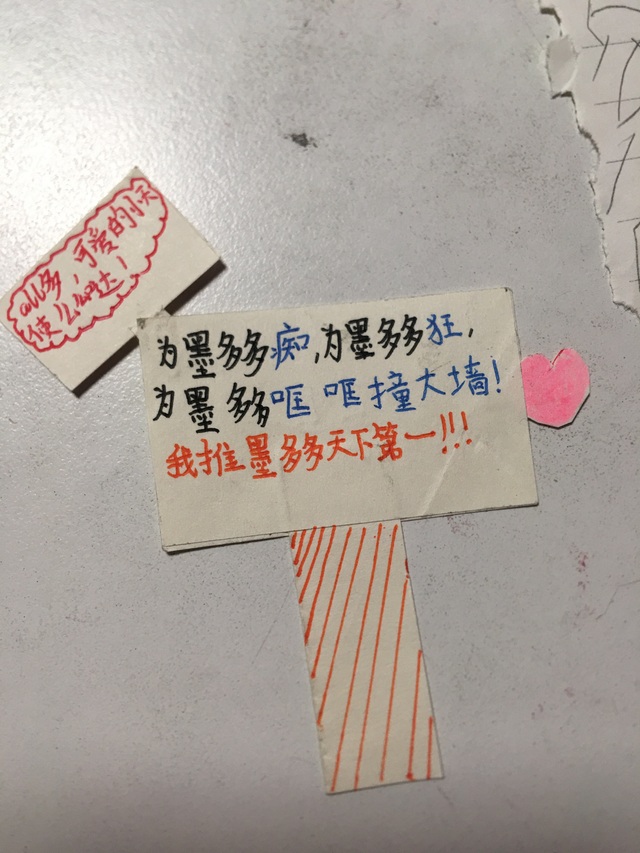 all多，可爱的小天
使么么哒！
为墨多多痴,为墨多多狂,
为墨多多哐哐撞大墙!
我推墨多多天下第一!!!